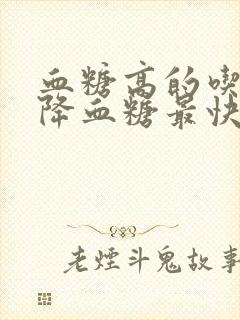 血糖高的喫
降血糖最快
老煙斗鬼故事